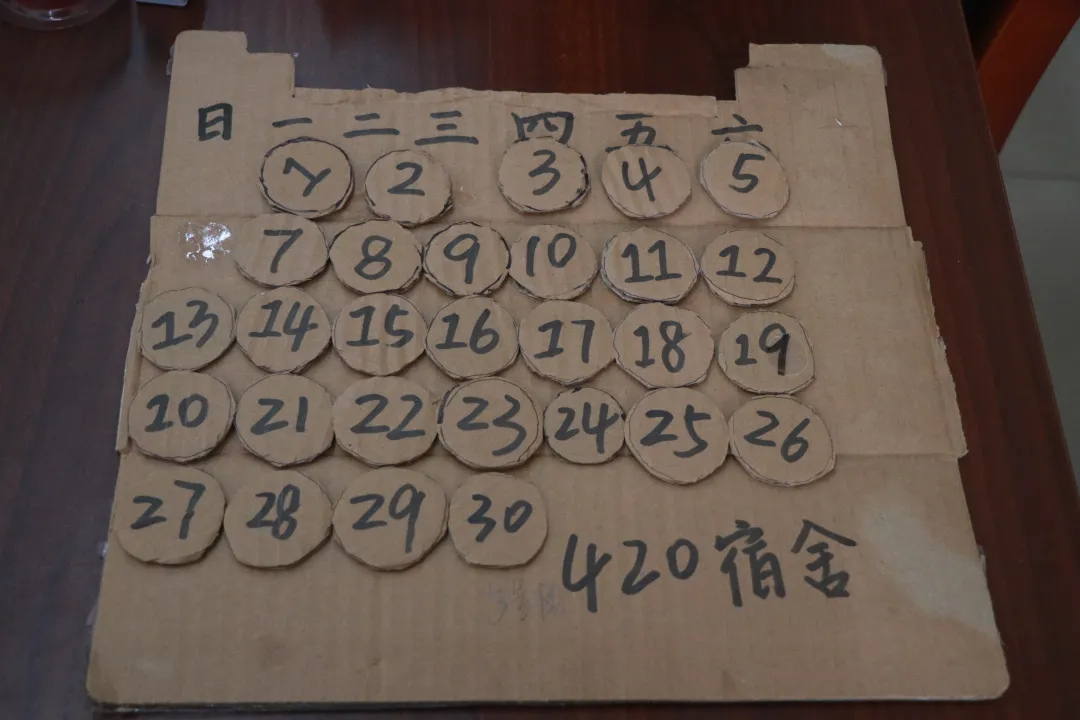 日 一 二 三 四 五 六
1 2 3 4 5
7 8 9 10 11 12
13 14 15 16 17 18 19
10 21 22 23 24 25 26
27 28 29 30
420宿舍